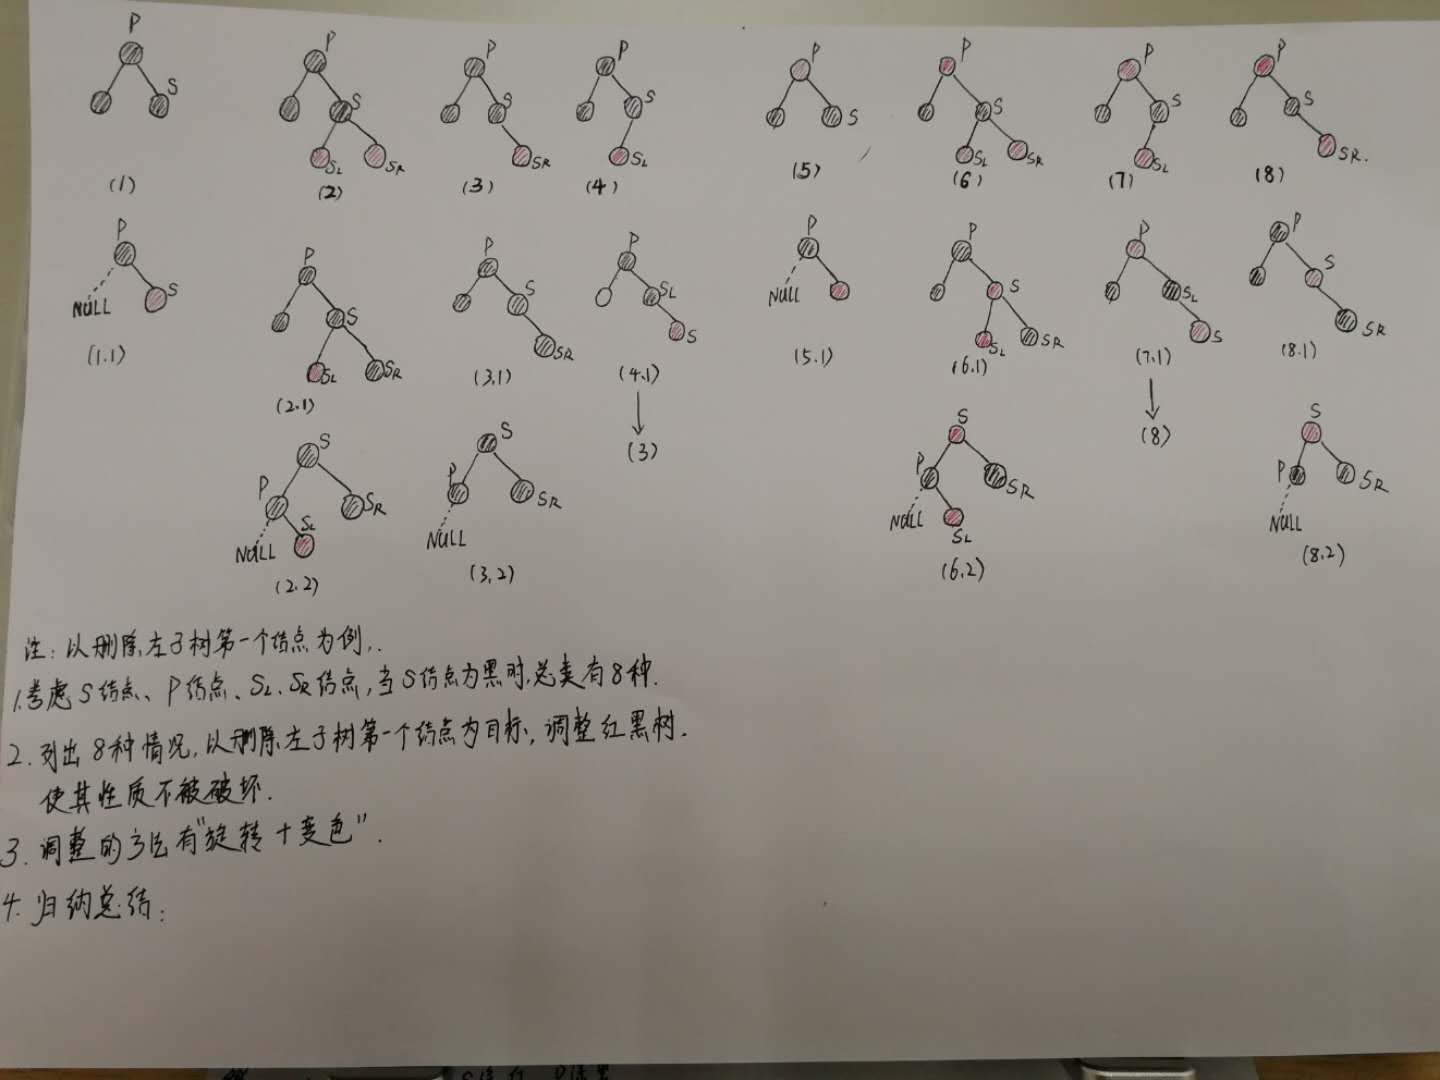 P P P P P P P P
S S S S S S S S
SL SR SR SL SL SR SL SR.
(1) (2) (3) (4) (5) (6) (7) (8)
P P P P P P P P
NULL S S S SL NULL S SL S
SL SR SR S SL SR S SR
(1.1) (2.1) (3.1) (4.1) (5.1) (6.1) (7.1) (8.1)
(3) (8)
S S S S
P SR P SR P SR P SR
NULL SL NULL NULL SL NULL
(2.2) (3.2) (6.2) (8.2)
注:以删除左子树第一个结点为例,.
1.考虑S结点、P结点、SL、SR结点,当S结点为黑时,总类有8种.
2.列出8种情况,以删除左子树第一个结点为目标,调整红黑树.
使其性质不被破坏.
3.调整的方法有"旋转+变色".
4.归纳总结: